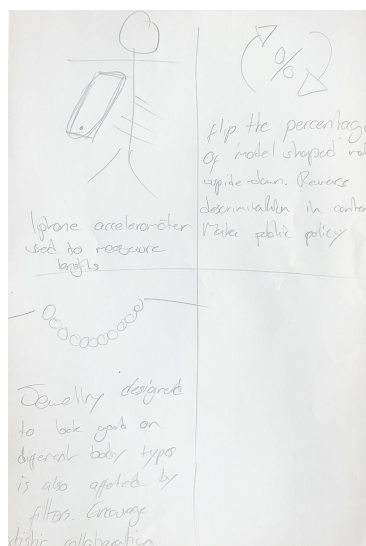 Iphone accelerometer
used to measure
lengths
%
flip the percentage
of model shaped
upside-down. Reverse
descrimination in
Make public policy
Jewellry designed
to look good on
different body types
is also affected by
filters. Encourage
collaboration